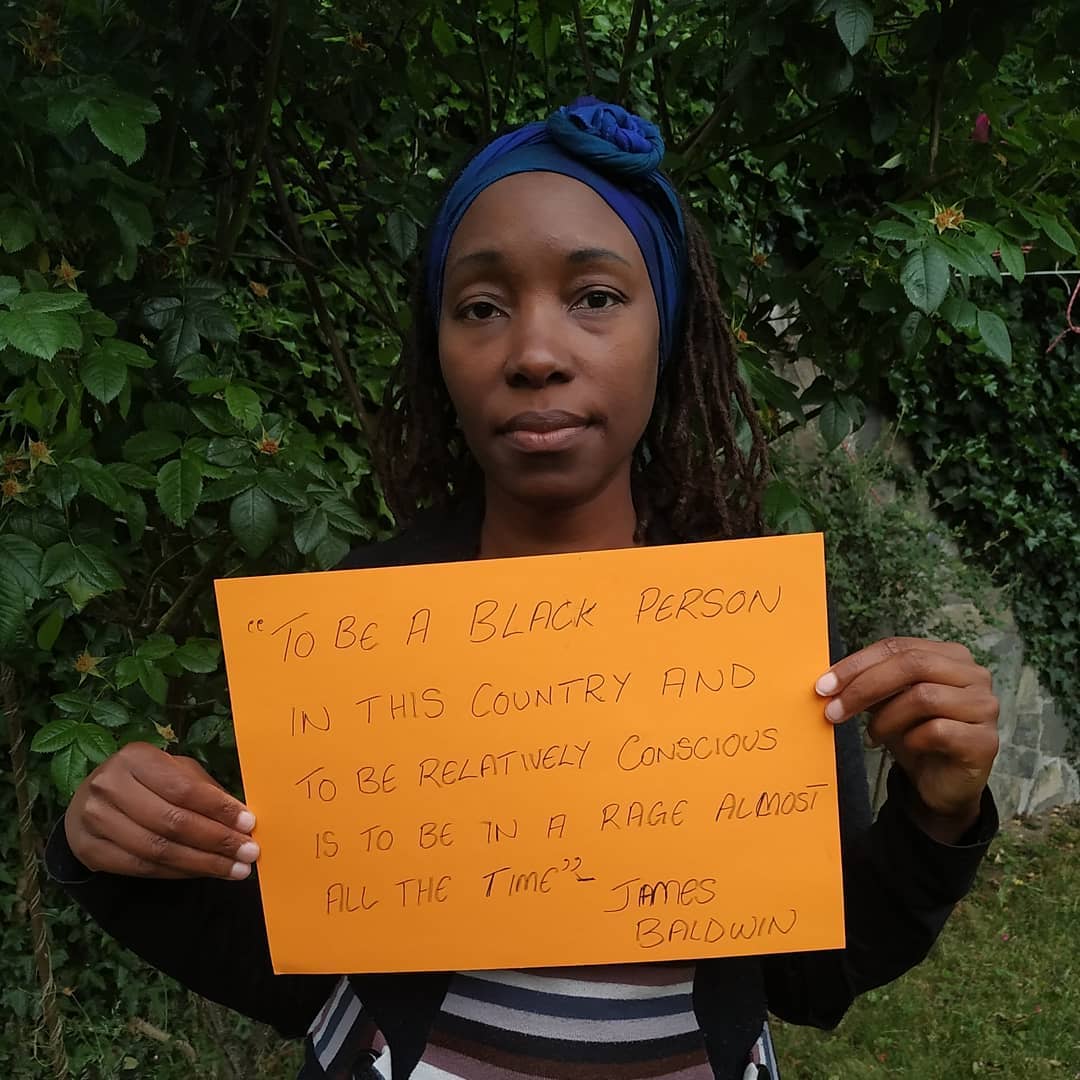 "TO BE A BLACK PERSON
IN THIS COUNTRY AND
TO BE RELATIVELY CONSCIOUS
IS TO BE IN A RAGE ALMOST
ALL THE TIME"- JAMES
BALDWIN